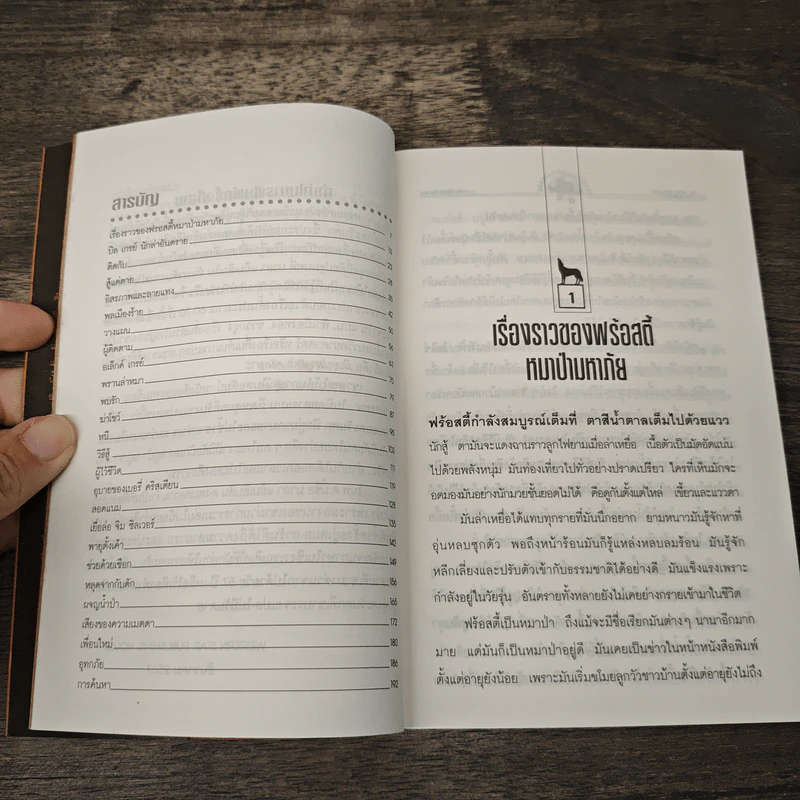 สารบัญ
เรื่องราวของฟรอสตี้หมาป่ามหาภัย 7
บิล เกรย์ นักล่าอันตราย 13
ติดกับ 20
สู้แค่ตาย 28
อิสรภาพและลายแทง 35
พลเมืองร้าย 42
วางแผน 50
ผู้ติดตาม 56
อเล็กค์ เกรย์ 62
พรานล่าหมา 70
พบรัก 79
ฆ่าโชว์ 87
หนี 95
วิธีสู้ 103
ผู้ไว้ชีวิต 111
อุบายของเบอรี่ คริสเตียน 119
สอดแนม 128
เยื่อล่อ จิม ซิลเวอร์ 135
พายุตั้งเค้า 142
ช่วยด้วยเชือก 149
หลุดจากกับดัก 156
ผจญน้ำป่า 165
เสียงของความเมตตา 172
เพื่อนใหม่ 180
อุทกภัย 186
การค้นหา 192
1
เรื่องราวของฟร้อสตี้
หมาป่ามหาภัย
ฟร้อสตี้กำลังสมบูรณ์เต็มที่ ตาสีน้ำตาลเต็มไปด้วยแวว
นักสู้ ตามันจะแดงฉานราวลูกไฟยามเมื่อล่าเหยื่อ เนื้อตัวเป็นมัดอัดแน่น
ไปด้วยพลังหนุ่ม มันท่องเที่ยวไปทั่วอย่างปราดเปรียว ใครที่เห็นมักจะ
อดมองมันอย่างนักมวยชั้นยอดไม่ได้ คือดูกันตั้งแต่ไหล่ เขี้ยวและแววตา
มันล่าเหยื่อได้แทบทุกรายที่มันนึกอยาก ยามหนาวมันรู้จักหาที่
อุ่นหลบซุกตัว พอถึงหน้าร้อนมันก็รู้แหล่งหลบลมร้อน มันรู้จัก
หลีกเลี่ยงและปรับตัวเข้ากับธรรมชาติได้อย่างดี มันแข็งแรงเพราะ
กำลังอยู่ในวัยรุ่น อันตรายทั้งหลายยังไม่เคยย่างกรายเข้ามาในชีวิต
ฟร้อสตี้เป็นหมาป่า ถึงแม้จะมีชื่อเรียกมันต่างๆ นานาอีกมาก
มาย แต่มันก็เป็นหมาป่าอยู่ดี มันเคยเป็นข่าวในหน้าหนังสือพิมพ์
ตั้งแต่อายุยังน้อย เพราะมันเริ่มขโมยลูกวัวชาวบ้านตั้งแต่อายุยังไม่ถึง